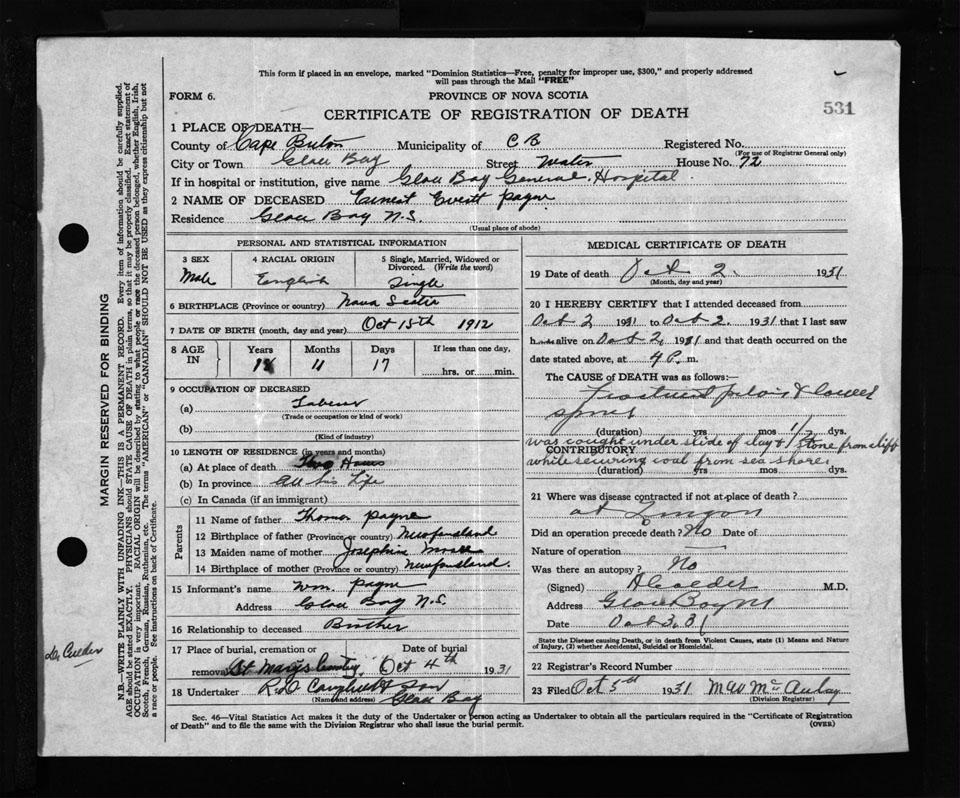 This form if placed in an envelope, marked "Dominion Statistics—Free, penalty for improper use, $300," and properly addressed
will pass through the Mail "FREE"
FORM 6.
PROVINCE OF NOVA SCOTIA
531
CERTIFICATE OF REGISTRATION OF DEATH
1 PLACE OF DEATH—
County of Cape Breton Municipality of C B Registered No.
(For use of Registrar General only)
City or Town Glace Bay Street Water House No. 72
If in hospital or institution, give name Glace Bay General Hospital
2 NAME OF DECEASED Ernest Everett Payne
Residence Glace Bay N.S.
(Usual place of abode)
PERSONAL AND STATISTICAL INFORMATION
3 SEX
Male
4 RACIAL ORIGIN
English
5 Single, Married, Widowed or
Divorced. (Write the word)
Single
6 BIRTHPLACE (Province or country) Nova Scotia
7 DATE OF BIRTH (month, day and year) Oct 15th 1912
8 AGE IN
Years Months Days If less than one day,
18 11 17 hrs. or min.
9 OCCUPATION OF DECEASED
(a) Laborer
(Trade or occupation or kind of work)
(b)
(Kind of industry)
10 LENGTH OF RESIDENCE (in years and months)
(a) At place of death Hours
(b) In province All his Life
(c) In Canada (if an immigrant)
Parents
11 Name of father Thomas Payne
12 Birthplace of father (Province or country) Newfoundland
13 Maiden name of mother Josephine
14 Birthplace of mother (Province or country) Newfoundland.
15 Informant's name Wm. Payne
Address Glace Bay N.S.
16 Relationship to deceased Brother
17 Place of burial, cremation or removal St Marys Cemetery Date of burial Oct 4th 1931
18 Undertaker & Son
(Name and address) Glace Bay
MEDICAL CERTIFICATE OF DEATH
19 Date of death Oct 2. 1931
(Month, day and year)
20 I HEREBY CERTIFY that I attended deceased from
Oct 2 1931 to Oct 2. 1931 that I last saw
h alive on Oct 2, 1931 and that death occurred on the
date stated above, at 4 P. m.
The CAUSE of DEATH was as follows:—
pelvis & lower
spine
(duration) yrs mos 1/2 dys.
was caught under slide of clay & stone from cliff
CONTRIBUTORY
while securing coal from sea shore.
(duration) yrs mos dys.
21 Where was disease contracted if not at place of death?
at
Did an operation precede death? No Date of
Nature of operation
Was there an autopsy? No
(Signed) M.D.
Address Glace Bay NS
Date Oct 3. 31
State the Disease causing Death, or in death from Violent Causes, state (1) Means and Nature
of Injury, (2) whether Accidental, Suicidal or Homicidal.
22 Registrar's Record Number
23 Filed Oct 5th 1931 McAulay
(Division Registrar)
Sec. 46—Vital Statistics Act makes it the duty of the Undertaker or person acting as Undertaker to obtain all the particulars required in the "Certificate of Registration
of Death" and to file the same with the Division Registrar who shall issue the burial permit. (OVER)
MARGIN RESERVED FOR BINDING
N.B.—WRITE PLAINLY WITH UNFADING INK—THIS IS A PERMANENT RECORD. Every item of information should be carefully supplied.
AGE should be stated EXACTLY. PHYSICIANS should STATE CAUSE OF DEATH in plain terms, so that it may be properly classified. Exact statement of
OCCUPATION is very important. RACIAL ORIGIN will be described by stating to what people or race the deceased person belonged, whether English, Irish,
Scotch, French, German, Russian, Ruthenian, etc. The terms "AMERICAN" or "CANADIAN" SHOULD NOT BE USED as they express citizenship but not
a race or people. See instructions on back of Certificate.